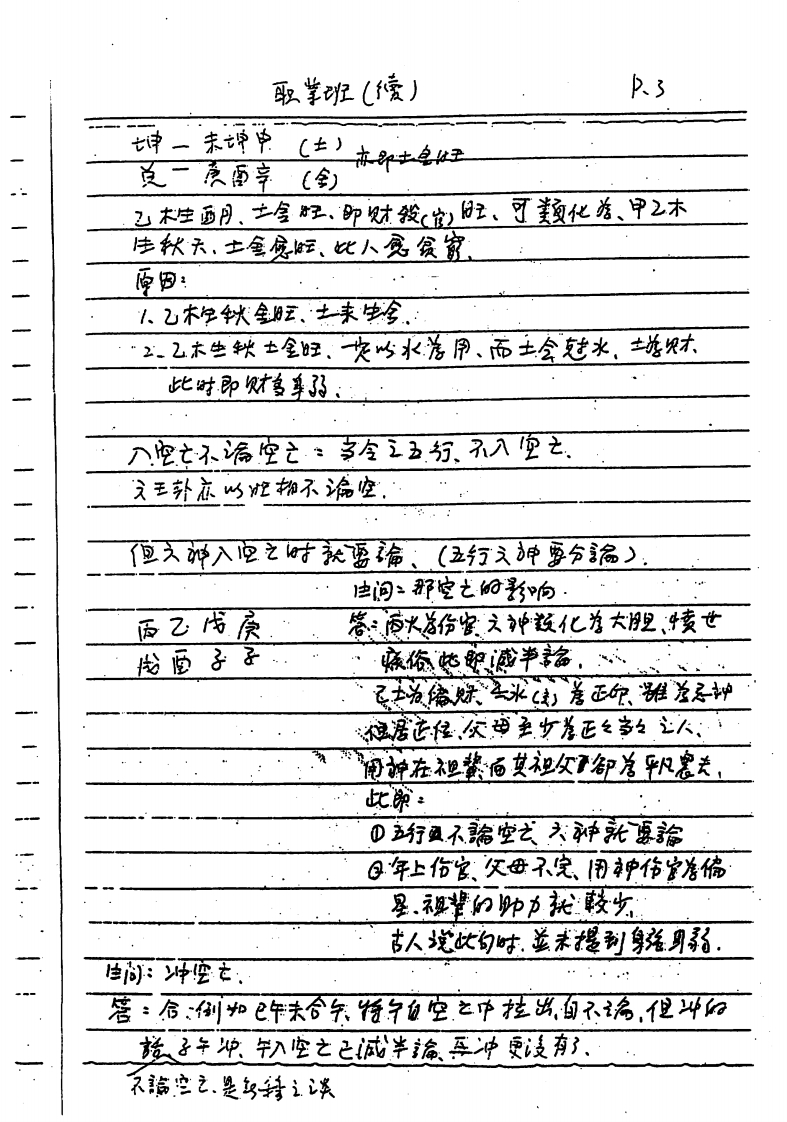 职業班(續) P.3
坤 — 未坤申 (土) 亦即土金旺
兌 — 庚酉辛 (金)
乙木生酉月、土金旺、即财殺(官)旺、可類化為、甲乙木
生秋天、土金愈旺、此人愈貧窮.
原因:
1、乙木生秋金旺、土来生金.
2、乙木生秋土金旺、一定以水為用、而土會尅水、土為财、
此时即财多身弱.
入空亡不論空亡: 当令之五行、不入空亡.
文王卦亦以旺相不論空.
但六神入空亡时就要論、(五行六神要分論).
生问: 那空亡的影响.
丙乙戊庚 答: 丙火為伤官、六神類化為大胆、愤世
戌酉子子 疾俗、此即减半論.
己土为偏财、壬水(子)為正印、雖為忌神
但居正位、父母至少為正正当当之人、
用神在祖輩、而其祖父卻為平凡農夫、
此即:
①五行不論空亡、六神就要論
②年上伤官、父母不完、用神伤官為偏
星、祖輩的助力就較少、
古人説此句时、並未提到身強身弱.
生问: 冲空亡.
答: 合、例如巳午未合午、将午自空亡中拉出、自不論、但冲的
話、子午冲、午入空亡已减半論、再冲更没有了.
不論空亡、是之談